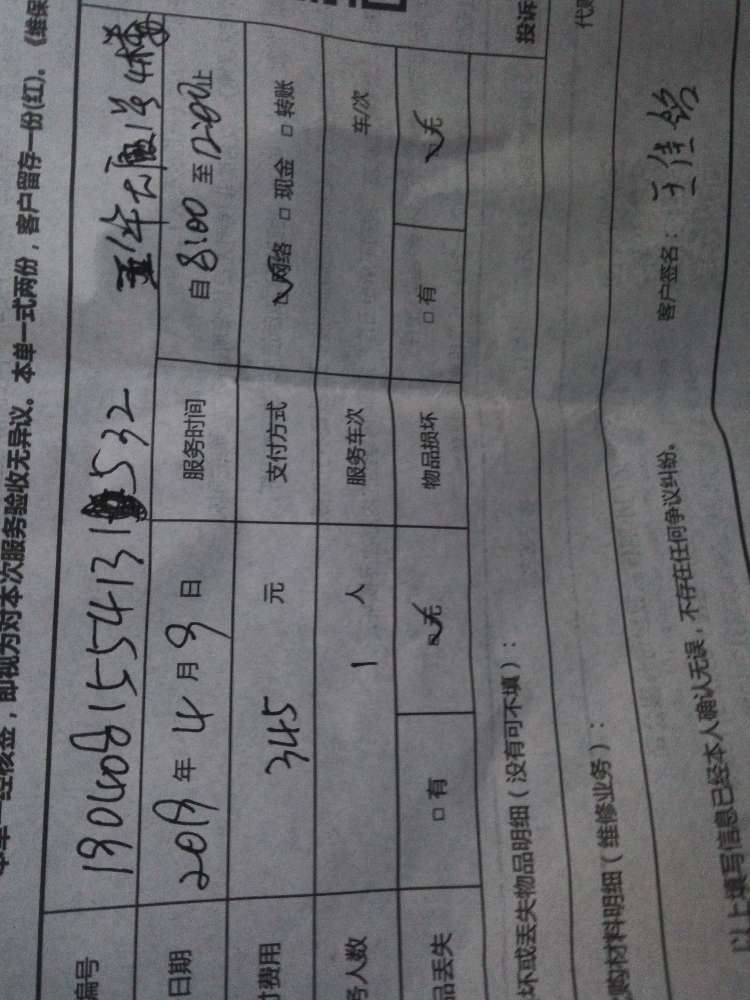 本次服务验收无异议。本单一式两份，客户留存一份(红)。《维保
编号 190408155413 532
日期 2019 年 4 月 9 日 服务时间 自 8:00 至 12:00 止
费用 345 元 支付方式 ☑ 网络 □ 现金 □ 转账
务人数 1 人 服务车次 车/次
品丢失 □ 有 ☑ 无 物品损坏 □ 有 ☑ 无
坏或丢失物品明细（没有可不填）： 投诉
购材料明细（维修业务）：
以上填写信息已经本人确认无误，不存在任何争议纠纷。 客户签名：王佳铭